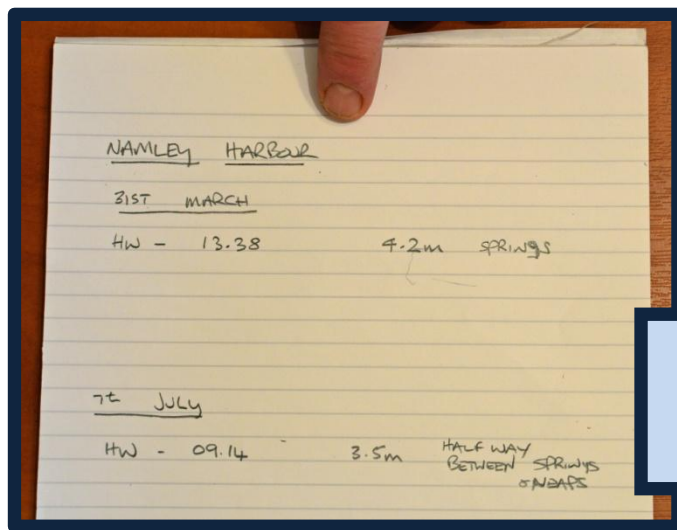 NAMLEY HARBOUR
31ST MARCH
HW - 13.38 4.2m SPRINGS
7th JULY
HW - 09.14 3.5m HALF WAY
BETWEEN SPRINGS
& NEAPS